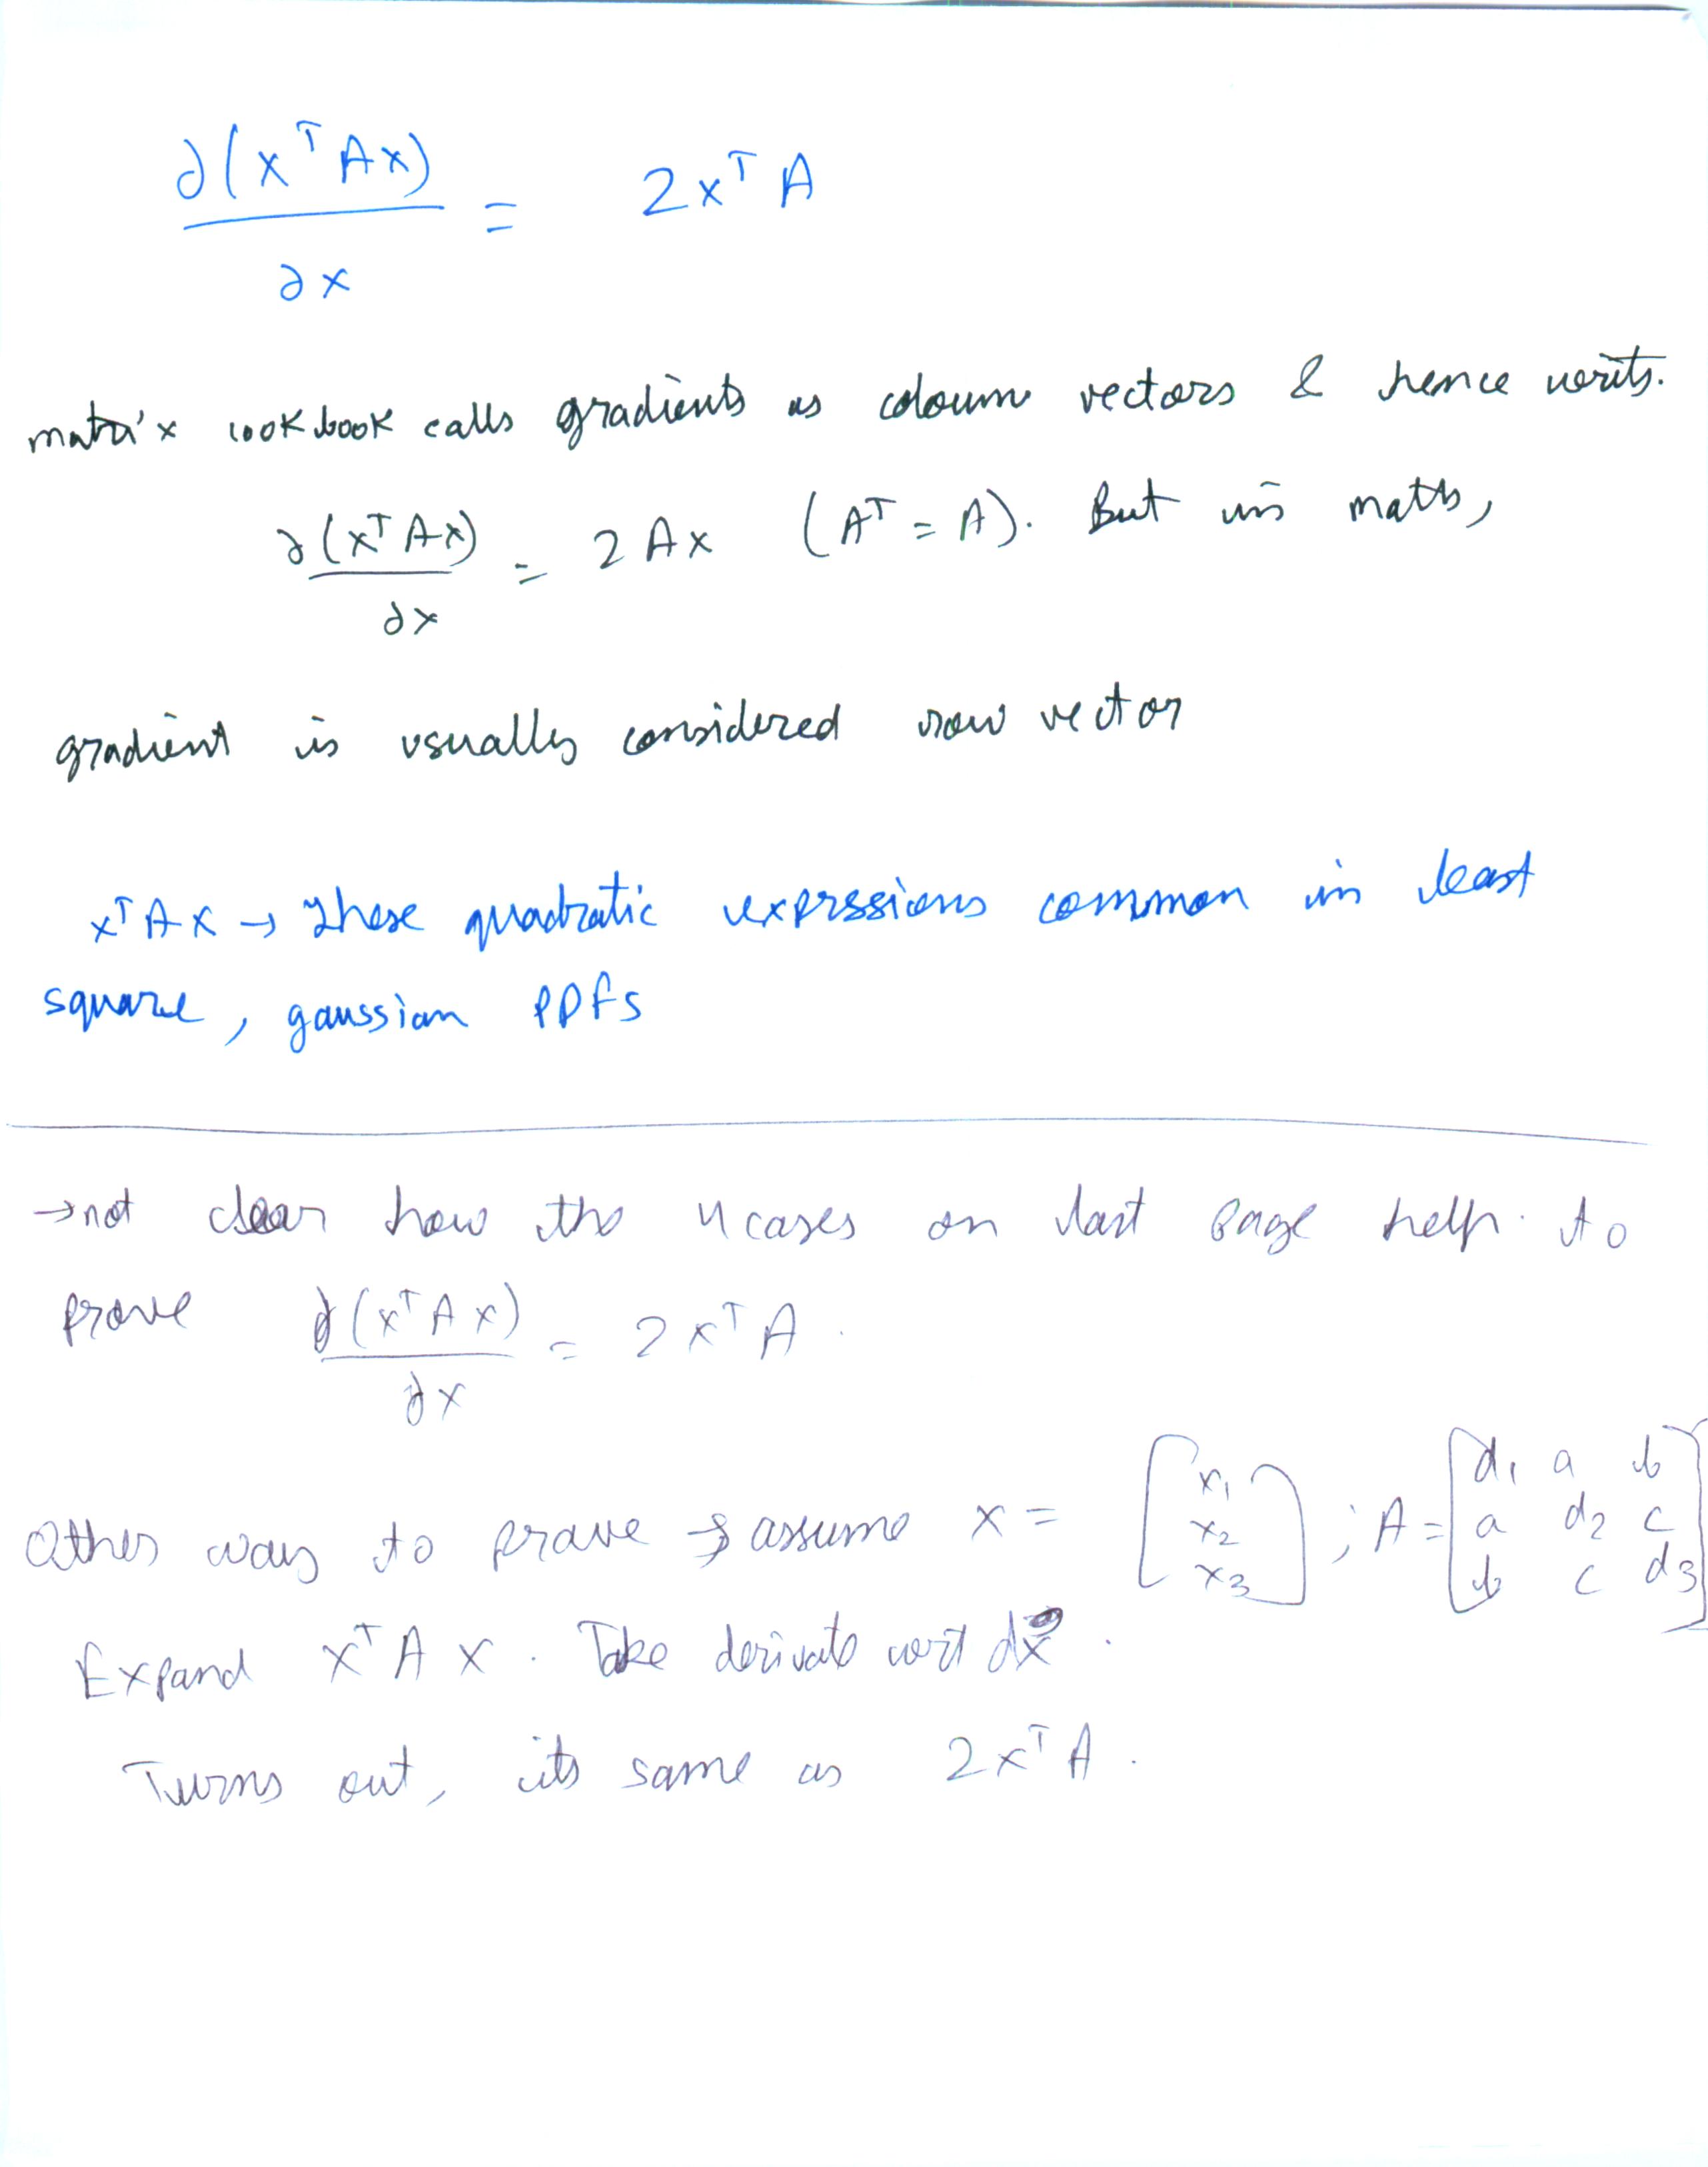 ∂(xᵀAx)/∂x = 2xᵀA
matrix cookbook calls gradients as coloum vectors & hence writes.
∂(xᵀAx)/∂x = 2Ax (Aᵀ = A). But in maths,
gradient is usually considered row vector
xᵀAx → these quadratic exprssions common in least
square, gaussian PDFs
→ not clear how the 4 cases on last page help to
prove ∂(xᵀAx)/∂x = 2xᵀA.
Other way to prove → assume x = [x₁ x₂ x₃] ; A = [d₁ a b; a d₂ c; b c d₃]
Expand xᵀAx. Take derivate wrt dx.
Turns out, its same as 2xᵀA.